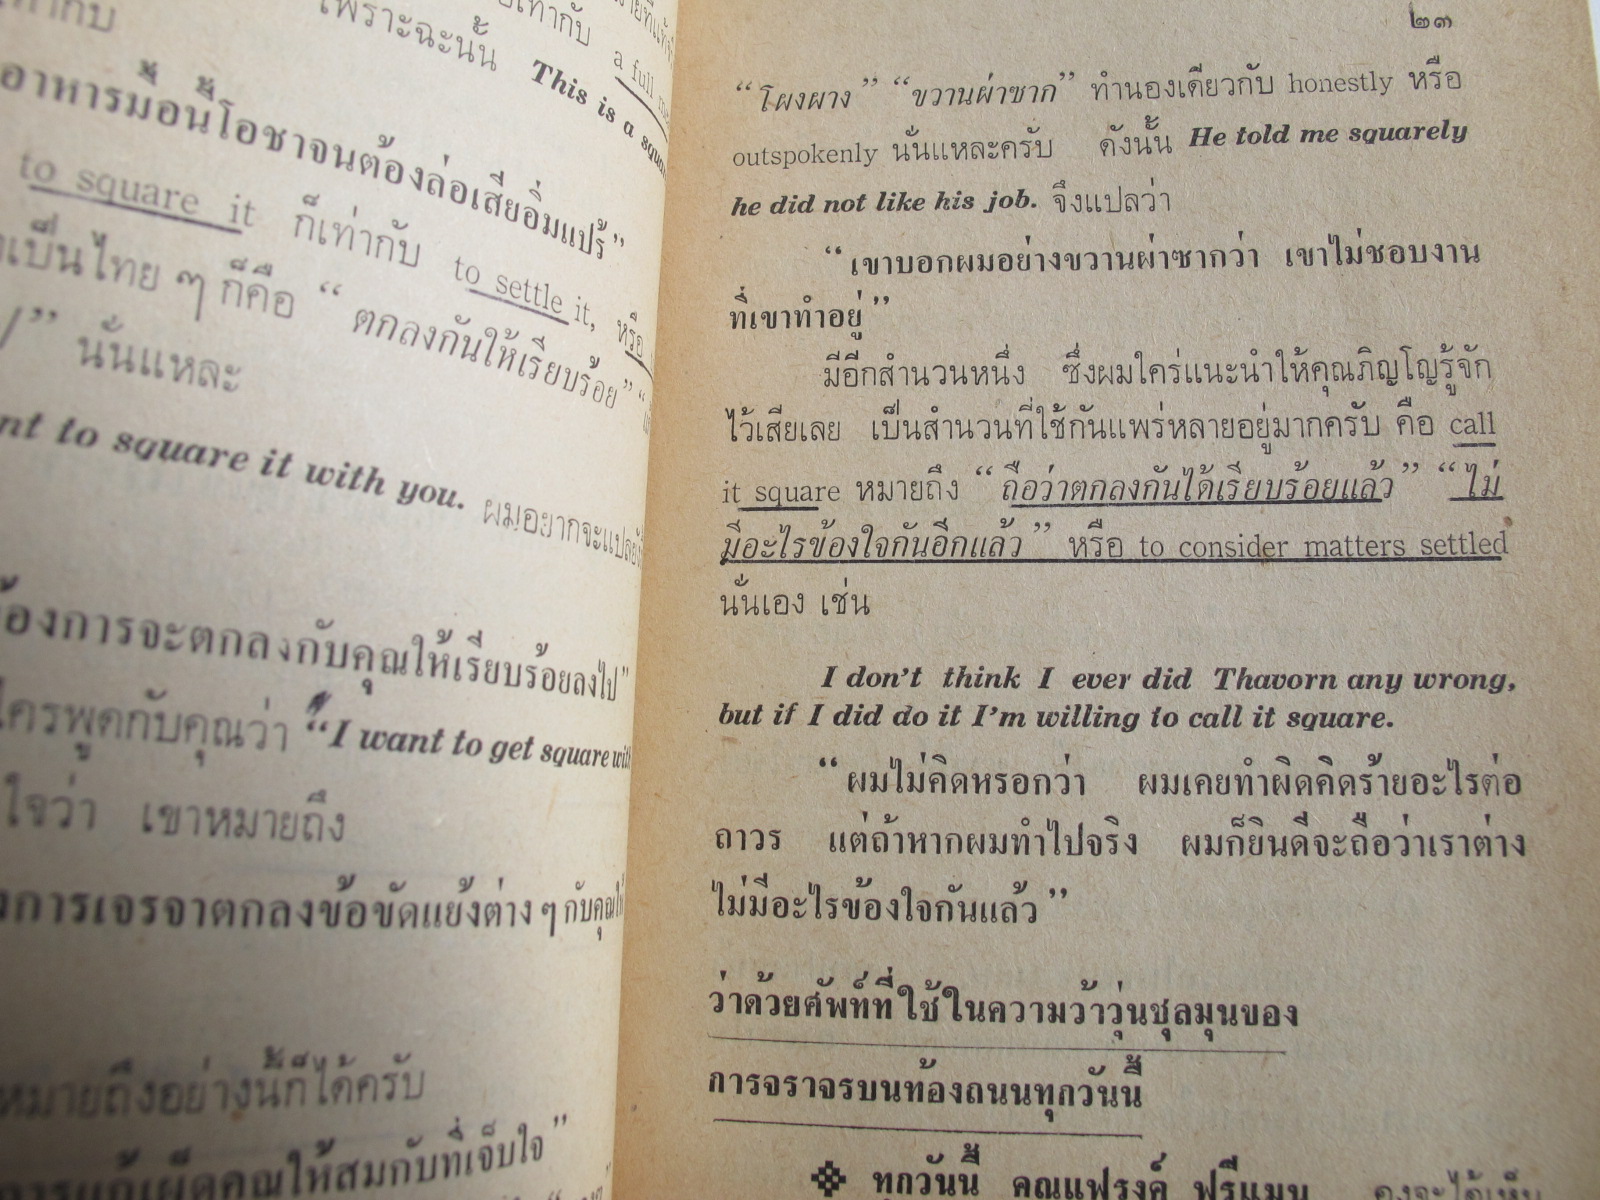 เท่ากับ
เพราะฉะนั้น This is a
อาหารมื้อนี้โอชาจนต้องล่อเสียอิ่มแปร้”
to square it ก็เท่ากับ to settle it, หรือ
เป็นไทย ๆ ก็คือ “ ตกลงกันให้เรียบร้อย”
” นั่นแหละ
to square it with you. ผมอยากจะแปล
ต้องการจะตกลงกับคุณให้เรียบร้อยลงไป”
ใครพูดกับคุณว่า “I want to get square with
ใจว่า เขาหมายถึง
การเจรจาตกลงข้อขัดแย้งต่าง ๆ กับคุณให้
หมายถึงอย่างนี้ก็ได้ครับ
การแก้เผ็ดคุณให้สมกับที่เจ็บใจ”
๒๓
“โผงผาง” “ขวานผ่าซาก” ทำนองเดียวกับ honestly หรือ
outspokenly นั่นแหละครับ ดังนั้น He told me squarely
he did not like his job. จึงแปลว่า
“เขาบอกผมอย่างขวานผ่าซากว่า เขาไม่ชอบงาน
ที่เขาทำอยู่”
มีอีกสำนวนหนึ่ง ซึ่งผมใคร่แนะนำให้คุณภิญโญรู้จัก
ไว้เสียเลย เป็นสำนวนที่ใช้กันแพร่หลายอยู่มากครับ คือ call
it square หมายถึง “ถือว่าตกลงกันได้เรียบร้อยแล้ว” “ไม่
มีอะไรข้องใจกันอีกแล้ว” หรือ to consider matters settled
นั่นเอง เช่น
I don't think I ever did Thavorn any wrong,
but if I did do it I'm willing to call it square.
“ผมไม่คิดหรอกว่า ผมเคยทำผิดคิดร้ายอะไรต่อ
ถาวร แต่ถ้าหากผมทำไปจริง ผมก็ยินดีจะถือว่าเราต่าง
ไม่มีอะไรข้องใจกันแล้ว”
ว่าด้วยศัพท์ที่ใช้ในความว้าวุ่นชุลมุนของ
การจราจรบนท้องถนนทุกวันนี้
ทุกวันนี้ คุณแฟรงค์ ฟรีแมน คงจะได้เห็น